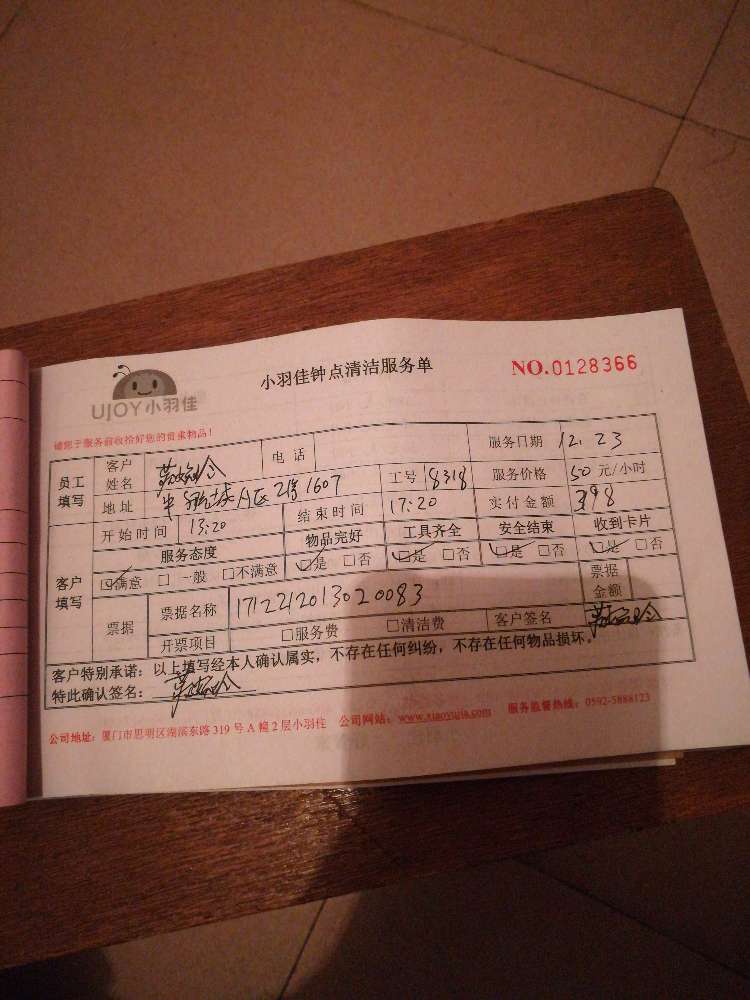 UJOY小羽佳
小羽佳钟点清洁服务单
NO.0128366
请您于服务前收拾好您的贵重物品!
员工填写 客户姓名 电话 服务日期 12.23
地址 A区2倍1607 工号 18318 服务价格 50 元/小时
开始时间 13:20 结束时间 17:20 实付金额 398
客户填写 服务态度 物品完好 工具齐全 安全结束 收到卡片
☑满意 □一般 □不满意 ☑是 □否 ☑是 □否 ☑是 □否 ☑是 □否
票据 票据名称 1712212013020083 票据金额
开票项目 □服务费 □清洁费 客户签名
客户特别承诺:以上填写经本人确认属实,不存在任何纠纷,不存在任何物品损坏。
特此确认签名:
公司地址:厦门市思明区湖滨东路319号A幢2层小羽佳 公司网站:www.xiaoyujia.com 服务监督热线:0592-5888123